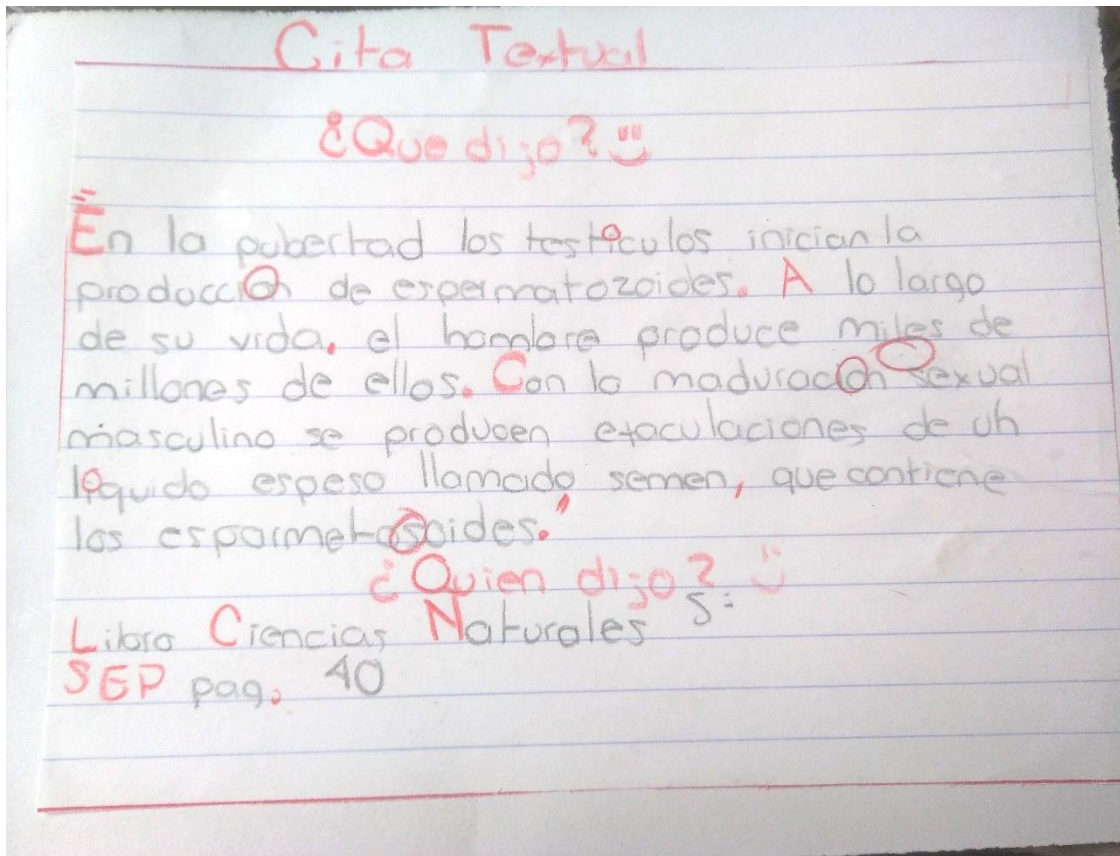 Cita Textual
¿Que dijo? 
"En la pubertad los testiculos inician la
producción de espermatozoides. A lo largo
de su vida, el hombre produce miles de
millones de ellos. Con la maduración sexual
masculino se producen eyaculaciones de un
líquido espeso llamado semen, que contiene
los esparmetosoides."
¿Quien dijo?
Libro Ciencias Naturales 5º
SEP pag. 40